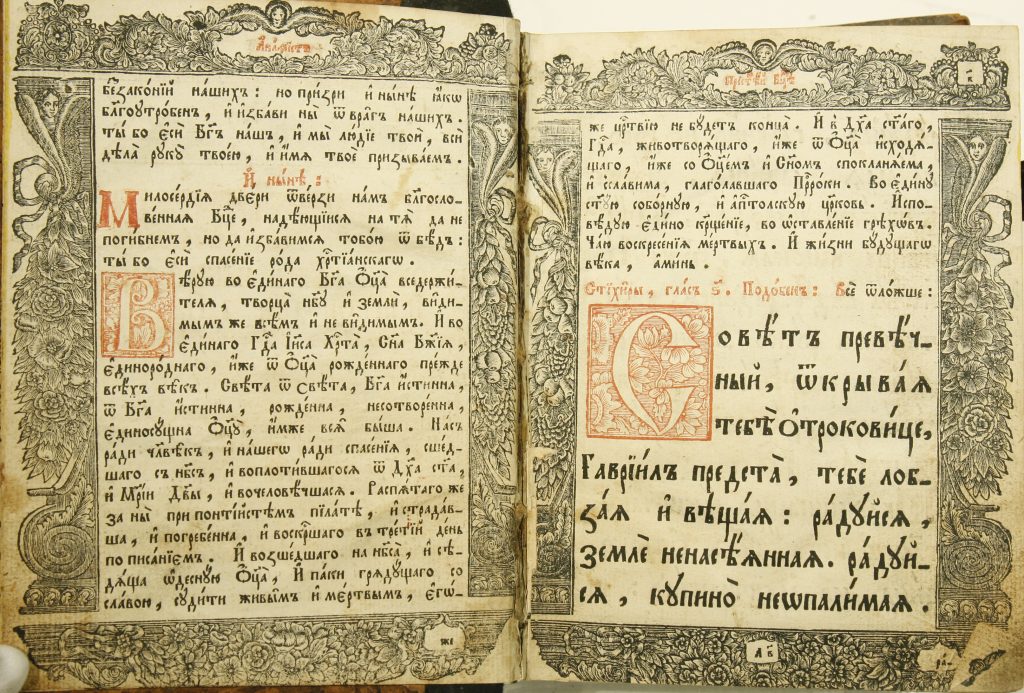 Акафістъ
беззаконїй нашихъ : но призри и нынѣ ꙗкѡ
бл҃гоутробенъ , и избави ны ѿ врагъ нашихъ .
ты бо еси Бг҃ъ нашъ , и мы людїе твои , вси
дѣла рꙋкꙋ твоею , и имя твое призываемъ .
И нынѣ :
Милосердїѧ двери ѿверзи намъ благосло-
венная Бц҃е , надѣющїися на тѧ да не
погибнемъ , но да избавимся тобою ѿ бѣдъ :
ты бо еси спасенїе рода хрⷭ҇тїанскагѡ .
Вѣрую во единаго Бг҃а Оц҃а вседержи-
теля , творца нб҃ꙋ и земли , види-
мымъ же всѣмъ и не видимымъ . И во
единаго Гдⷭ҇а Іи҃са Хрⷭ҇та , Сн҃а Бж҃їѧ ,
единороднаго , иже ѿ Оц҃а рожденнаго прежде
всѣхъ вѣкъ . Свѣта ѿ свѣта , Бг҃а истинна ,
ѿ Бг҃а истинна , рожденна , несотворенна ,
единосущна Оц҃ꙋ , имже всѧ быша . Насъ
ради чл҃вѣкъ , и нашегѡ ради спасенїѧ , сшед-
шаго съ нб҃съ , и воплотившагося ѿ Дх҃а ст҃а ,
и Мр҃їи Дв҃ы , и вочеловѣчшася . Распѧтаго же
за ны при понтїйстѣмъ пїлатѣ , и страдав-
ша , и погребенна , и воскрⷭ҇шаго въ третїй день
по писанїемъ . И возшедшаго на нб҃са , и сѣ-
дѧща ѡдесную Оц҃а , И паки грѧдущаго со
славою , судити живымъ и мертвымъ , егѡ-
же
Прест҃ѣй Бц҃ѣ
же црⷭ҇твїю не будетъ конца . И в Дх҃а ст҃аго ,
Гдⷭ҇а , животворящаго , иже ѿ Оц҃а исходѧ-
щаго , иже со Оц҃емъ и Сн҃омъ спокланяема ,
и сславима , глаголавшаго Прⷪ҇роки . Во едину
ст҃ꙋю соборную , и апⷭ҇толскую црковь . Испо-
вѣдую едино крⷭ҇щенїе , во ѡставленїе грѣховъ .
Чаю воскресенїѧ мертвыхъ . И жизни будущагѡ
вѣка , аминь .
Стїхиры , гласъ ѕ҃ . Подобенъ : Всѐ ѿложше :
Совѣтъ превѣч-
ный , ѿкрываѧ
тебѣ Отроковице ,
Гаврїилъ предста , тебѐ лоб-
заѧ и вѣщаѧ : радꙋйсѧ ,
землѐ ненасѣянная . радꙋй-
сѧ , купино неѡпалимая .
А в҃
ра-